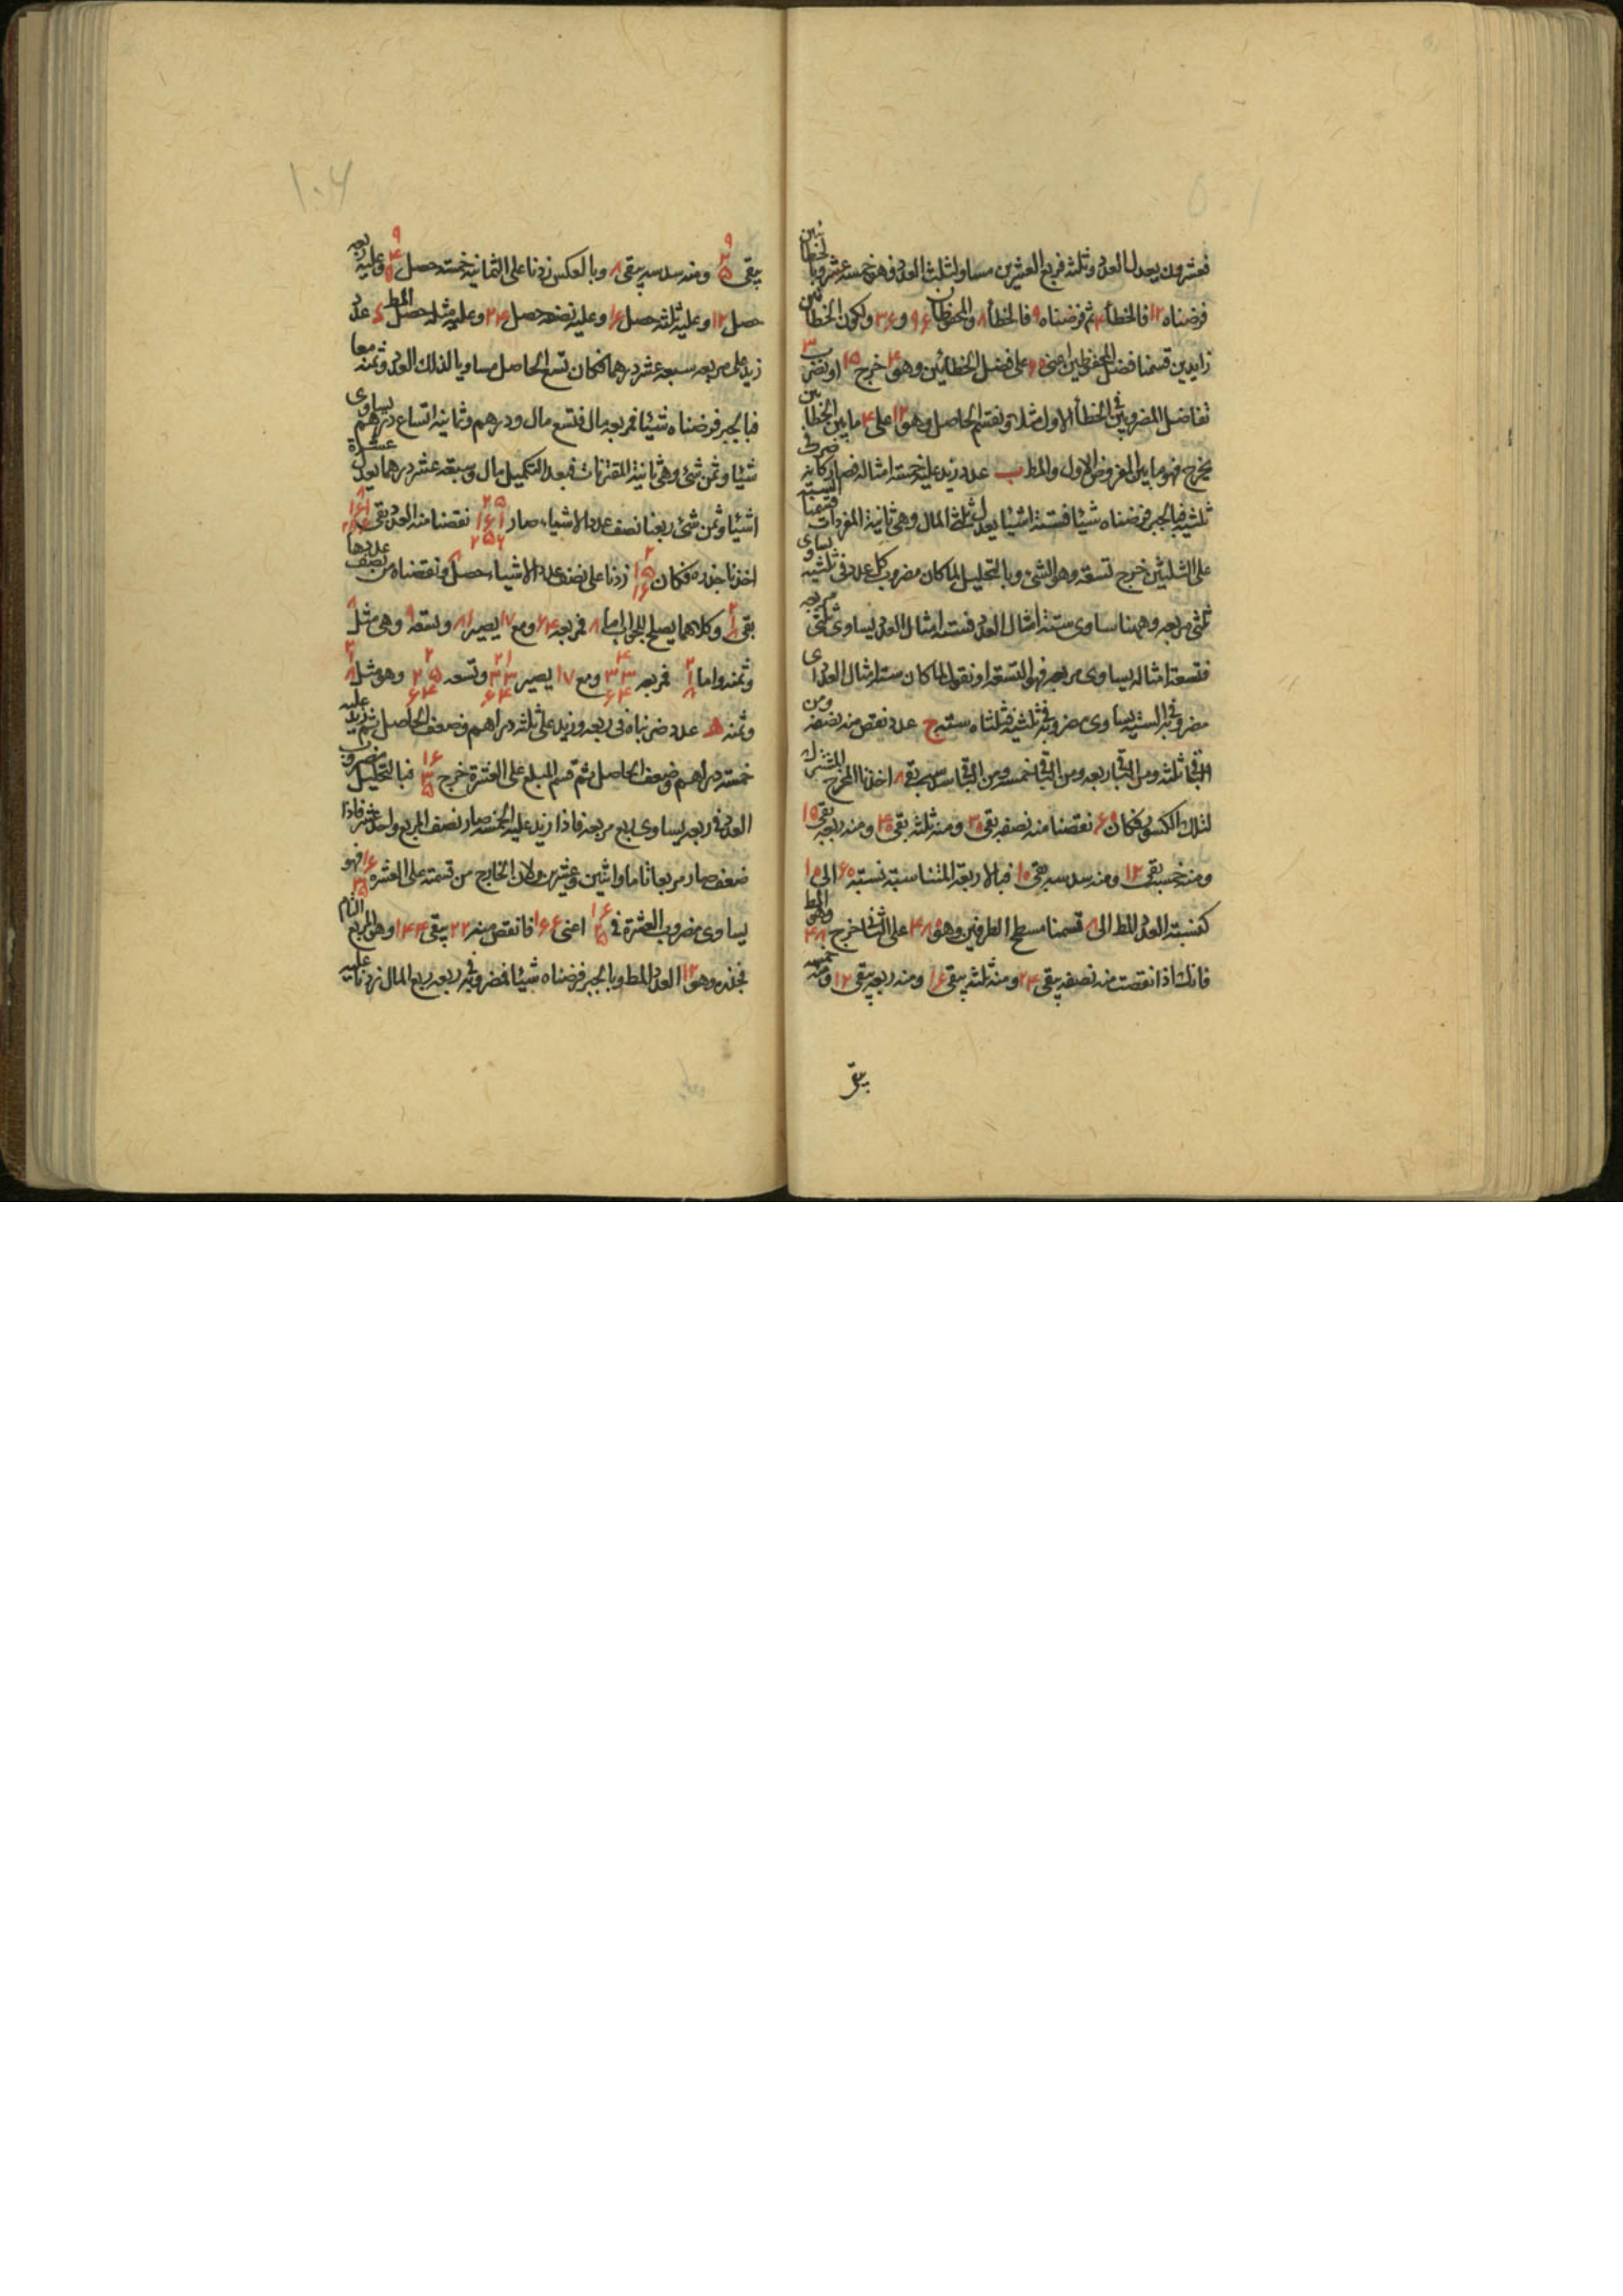 فعشرون يعدل العدد وثلثه فربع العشرين مساو لثلث العدد فهو خمسة عشر وبالخطائين
فرضناه ١٢ فالخطأ ٤ ثم فرضناه ٩ فالخطأ ٨ والمحفوظان ٩٦ و ٣٦ ولكون الخطائين
زايدين قسمنا فضل المحفوظين اعنى ٦٠ على فضل الخطائين وهو ٤ خرج ١٥ او نضرب ٣
تفاضل المفروضين في الخطأ الاول مثلا ونقسم الحاصل وهو ١٢ على ٤ ما بين الخطائين
يخرج فهو ما بين المفروض الاول والمط ب عدد زيد عليه خمسة امثاله فصار كانه ضرب في
ثلثيه فبالجبر فرضناه شيئا فستة اشيا يعدل ثلثى المال وهى ثانية المفردات قسمنا الستة
على الثلثين خرج تسعة وهو الشئ وبالتحليل لما كان مضروب كل عدد في ثلثيه يساوى
ثلثى مربعه وههنا ساوى ستة امثال العدد فستة امثال العدد يساوى ثلثى مربعه
فتسعة امثاله يساوى مربعه فهو التسعة او نقول لما كان ستة امثال العدد اى
مضروبه في الستة يساوى مضروبه في ثلثيه فثلثاه ستة ج عدد نقص منه نصفه ومن
الباقى ثلثه ومن الباقى ربعه ومن الباقى خمسه ومن الباقى سدسه بقى ٨ اخذنا المخرج المشترك
لتلك الكسور فكان ٦٠ نقصنا منه نصفه بقى ٣٠ ومنه ثلثه بقى ٢٠ ومنه ربعه بقى ١٥
ومنه خمسه بقى ١٢ ومنه سدسه بقى ١٠ فبالاربعة المتناسبة نسبة ٦٠ الى ١٠
كنسبة العدد المط الى ٨ قسمنا مسطح الطرفين وهو ٤٨٠ على الثانى خرج ٤٨ وهو المط
فانك اذا نقصت منه نصفه يبقى ٢٤ ومنه ثلثه يبقى ١٦ ومنه ربعه يبقى ١٢ ومنه خمسه
يبقى
١٠٦
يبقى ٩ ٣ ٥ ومنه سدسه يبقى ٨ وبالعكس زدنا على الثمانية خمسه حصل ٩ وعليه ربعه
حصل ١٢ وعليه ثلثه حصل ١٦ وعليه نصفه حصل ٢٤ وعليه مثله حصل المط د عدد
زيد على مربعه سبعة عشر درهما فكان تسع الحاصل مساويا لذلك العدد وثمنه معا
فبالجبر فرضناه شيئا فمربعه مال فتسع مال ودرهم وثمانية اتساع درهم يساوى
شيئا وثمن شئ وهى ثانية المقترنات فبعد التكميل مال وسبعة عشر درهما يعدل عشرة
اشيا وثمن شئ ربعنا نصف عدد الاشياء صار ٢٥ ١٦١ ٢٥٦ نقصنا منه العدد بقى
اخذنا جذره فكان ٢ ١٥ ١٦ زدنا على نصف عدد الاشياء حصل ٨ ونقصناه من نصف عددها
بقى ٢ ١ ٨ وكلاهما يصلح للجواب اما ٨ فمربعه ٦٤ ومع ١٧ يصير ٨١ وتسعه ٩ وهى مثل ٨
وثمنه واما ٢ ١ ٨ فمربعه ٤ ٣٣ ٦٤ ومع ١٧ يصير ٢١ ٣٣ ٦٤ وتسعه ٢ ٢٥ ٦٤ وهو مثل ٢ ١ ٨
وثمنه ه عدد ضربناه في ربعه وزيد على ثلثة دراهم وضعف الحاصل ثم زيد عليه
خمسة دراهم وضعف الحاصل ثم قسم المبلغ على العشرة خرج ١٦ ٣ ٥ فبالتحليل مضروب
العدد في ربعه يساوى ربع مربعه فاذا زيد عليه الخمسة صار نصف المربع واحد عشر فاذا
ضعف صار مربعا تاما واثنين وعشرين ولان الخارج من قسمته على العشرة ١٦ ٣ ٥ فهو
يساوى مضروب العشرة في ١٦ ٣ ٥ اعنى ١٦٦ فانقص منه ٢٢ يبقى ١٤٤ وهو المربع التام
فجذره وهو ١٢ العدد المط وبالجبر فرضناه شيئا فمضروبه في ربعه ربع المال زدنا عليه